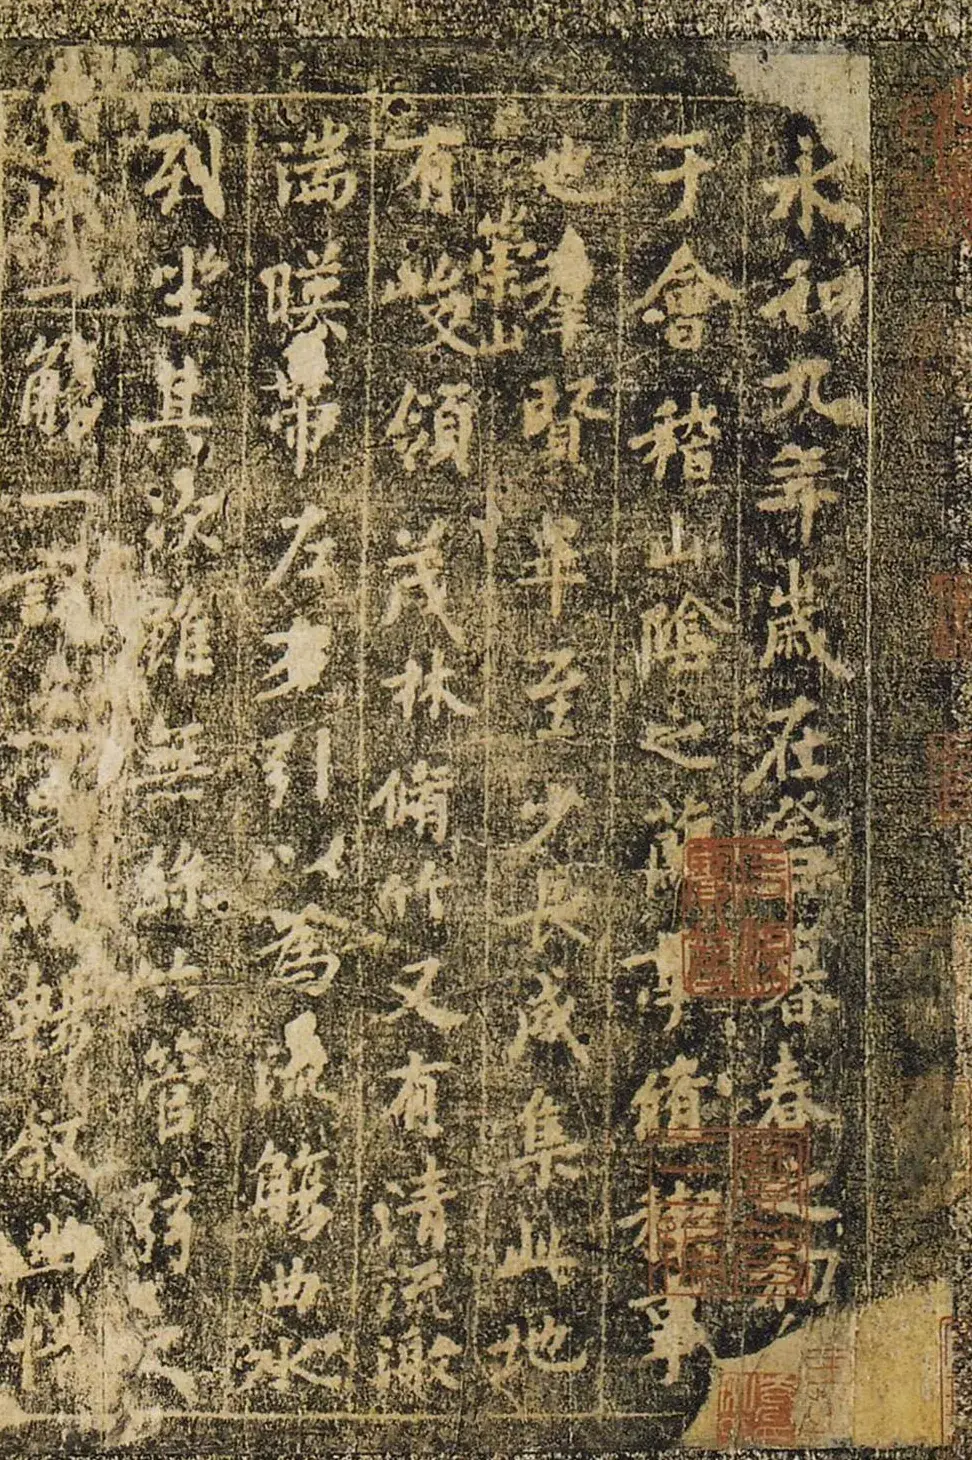 永和九年歲在癸丑暮春之初
于會稽山陰之蘭亭脩稧事
也羣賢畢至少長咸集此地
崇山
有峻領茂林脩竹又有清流激
湍暎帶左右引以為流觴曲水
列坐其次雖無絲竹管弦之
盛一觴一詠暢敘幽情